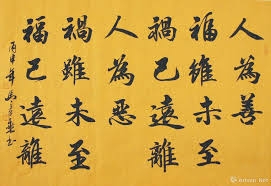 人為善
福雖未至
禍已遠離
人為惡
禍雖未至
福已遠離
丙申年